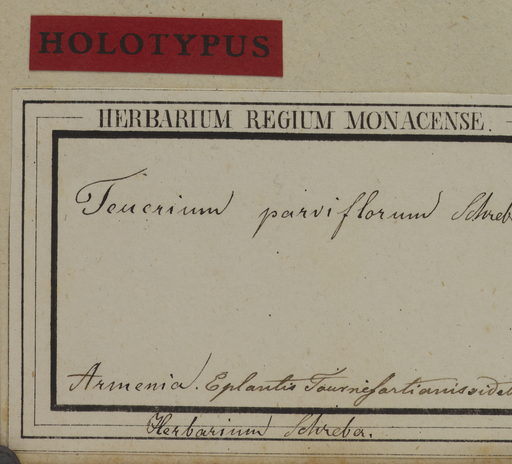 HOLOTYPUS
HERBARIUM REGIUM MONACENSE.
Teucrium parviflorum Schreb
Armenia. E plantis Tournefortianis videt
Herbarium Schreber.